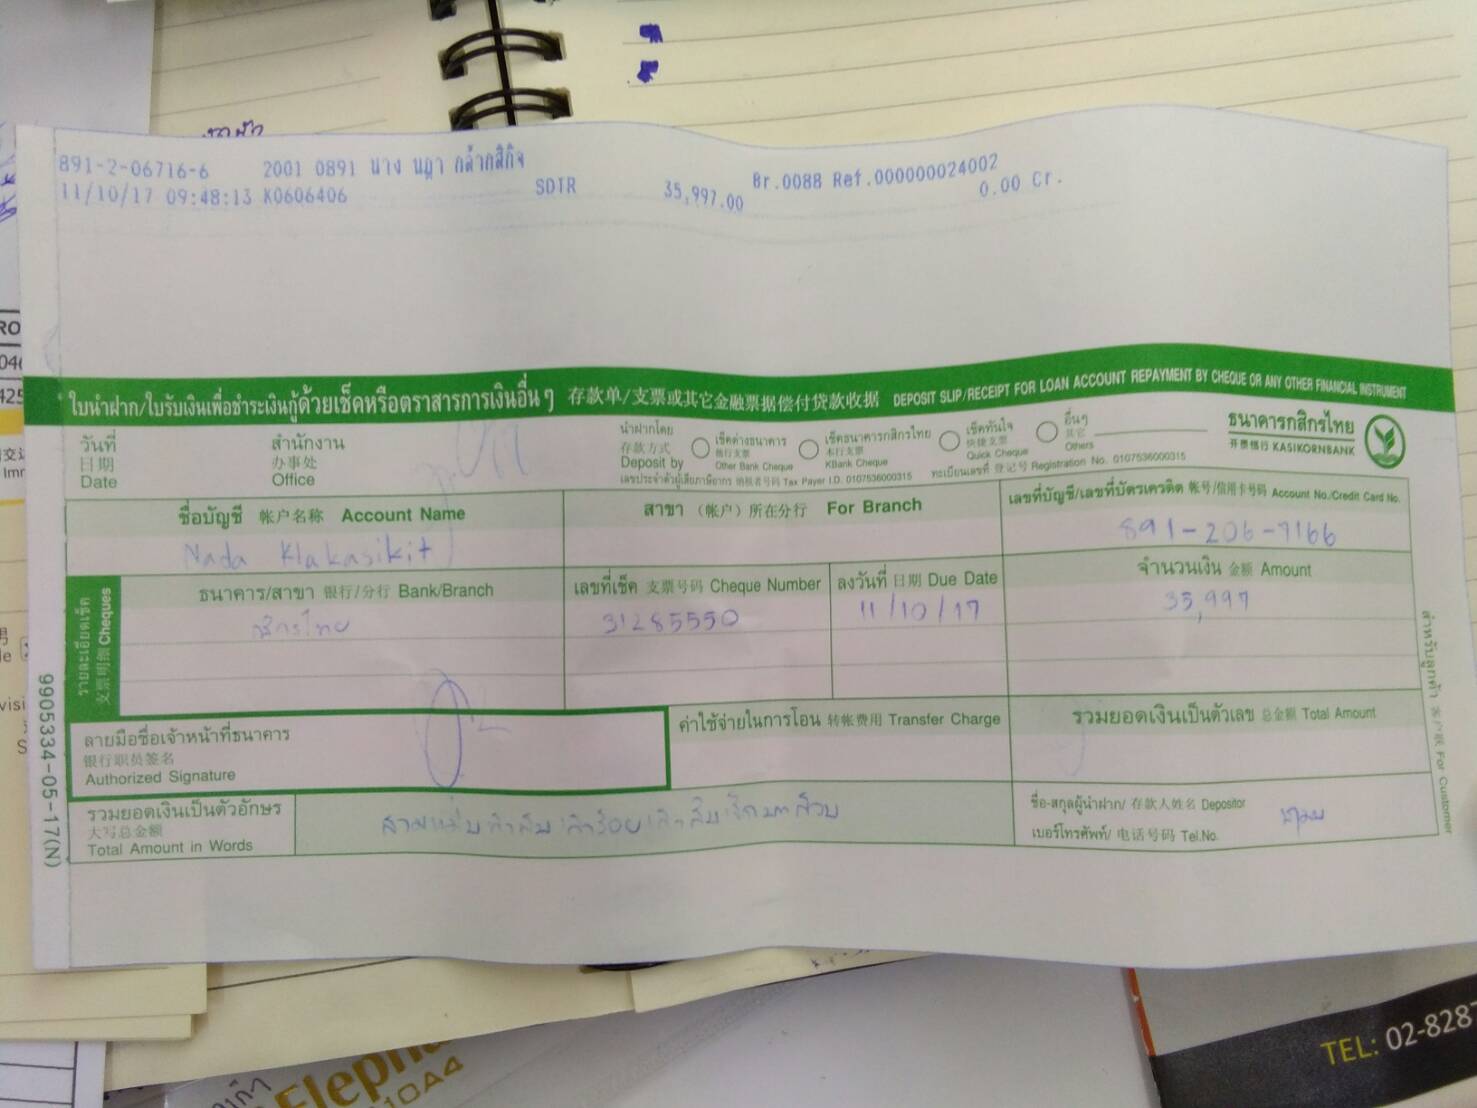 891-2-06716-6 2001 0891 นาง นฎา กล้ากสิกิจ Br.0088 Ref.000000024002
11/10/17 09:48:13 K0606406 SDTR 35,997.00 0.00 Cr.
ใบนำฝาก/ใบรับเงินเพื่อชำระเงินกู้ด้วยเช็คหรือตราสารการเงินอื่น ๆ 存款单/支票或其它金融票据偿付贷款收据 DEPOSIT SLIP/RECEIPT FOR LOAN ACCOUNT REPAYMENT BY CHEQUE OR ANY OTHER FINANCIAL INSTRUMENT
วันที่
日期
Date
สำนักงาน
办事处
Office
นำฝากโดย
存款方式
Deposit by
เช็คต่างธนาคาร
他行支票
Other Bank Cheque
เช็คธนาคารกสิกรไทย
本行支票
KBank Cheque
เช็คทันใจ
快捷支票
Quick Cheque
อื่นๆ
其它
Others
ธนาคารกสิกรไทย
开泰银行 KASIKORNBANK
เลขประจำตัวผู้เสียภาษีอากร 纳税者号码 Tax Payer I.D. 0107536000315 ทะเบียนเลขที่ 登记号 Registration No. 0107536000315
ชื่อบัญชี 帐户名称 Account Name
Nada Klakasikit
สาขา (帐户) 所在分行 For Branch
เลขที่บัญชี/เลขที่บัตรเครดิต 帐号/信用卡号码 Account No./Credit Card No.
891-206-7166
รายละเอียดเช็ค
支票明细 Cheques
ธนาคาร/สาขา 银行/分行 Bank/Branch
กสิกรไทย
เลขที่เช็ค 支票号码 Cheque Number
31285550
ลงวันที่ 日期 Due Date
11/10/17
จำนวนเงิน 金额 Amount
35,997
ลายมือชื่อเจ้าหน้าที่ธนาคาร
银行职员签名
Authorized Signature
ค่าใช้จ่ายในการโอน 转帐费用 Transfer Charge
รวมยอดเงินเป็นตัวเลข 总金额 Total Amount
รวมยอดเงินเป็นตัวอักษร
大写总金额
Total Amount in Words
สามหมื่นห้าพันเก้าร้อยเก้าสิบเจ็ดบาทถ้วน
ชื่อ-สกุลผู้นำฝาก/ 存款人姓名 Depositor
เบอร์โทรศัพท์/ 电话号码 Tel.No.
สำหรับลูกค้า 客户联 For Customer
9905334-05-17(N)
TEL: 02-828
10A4